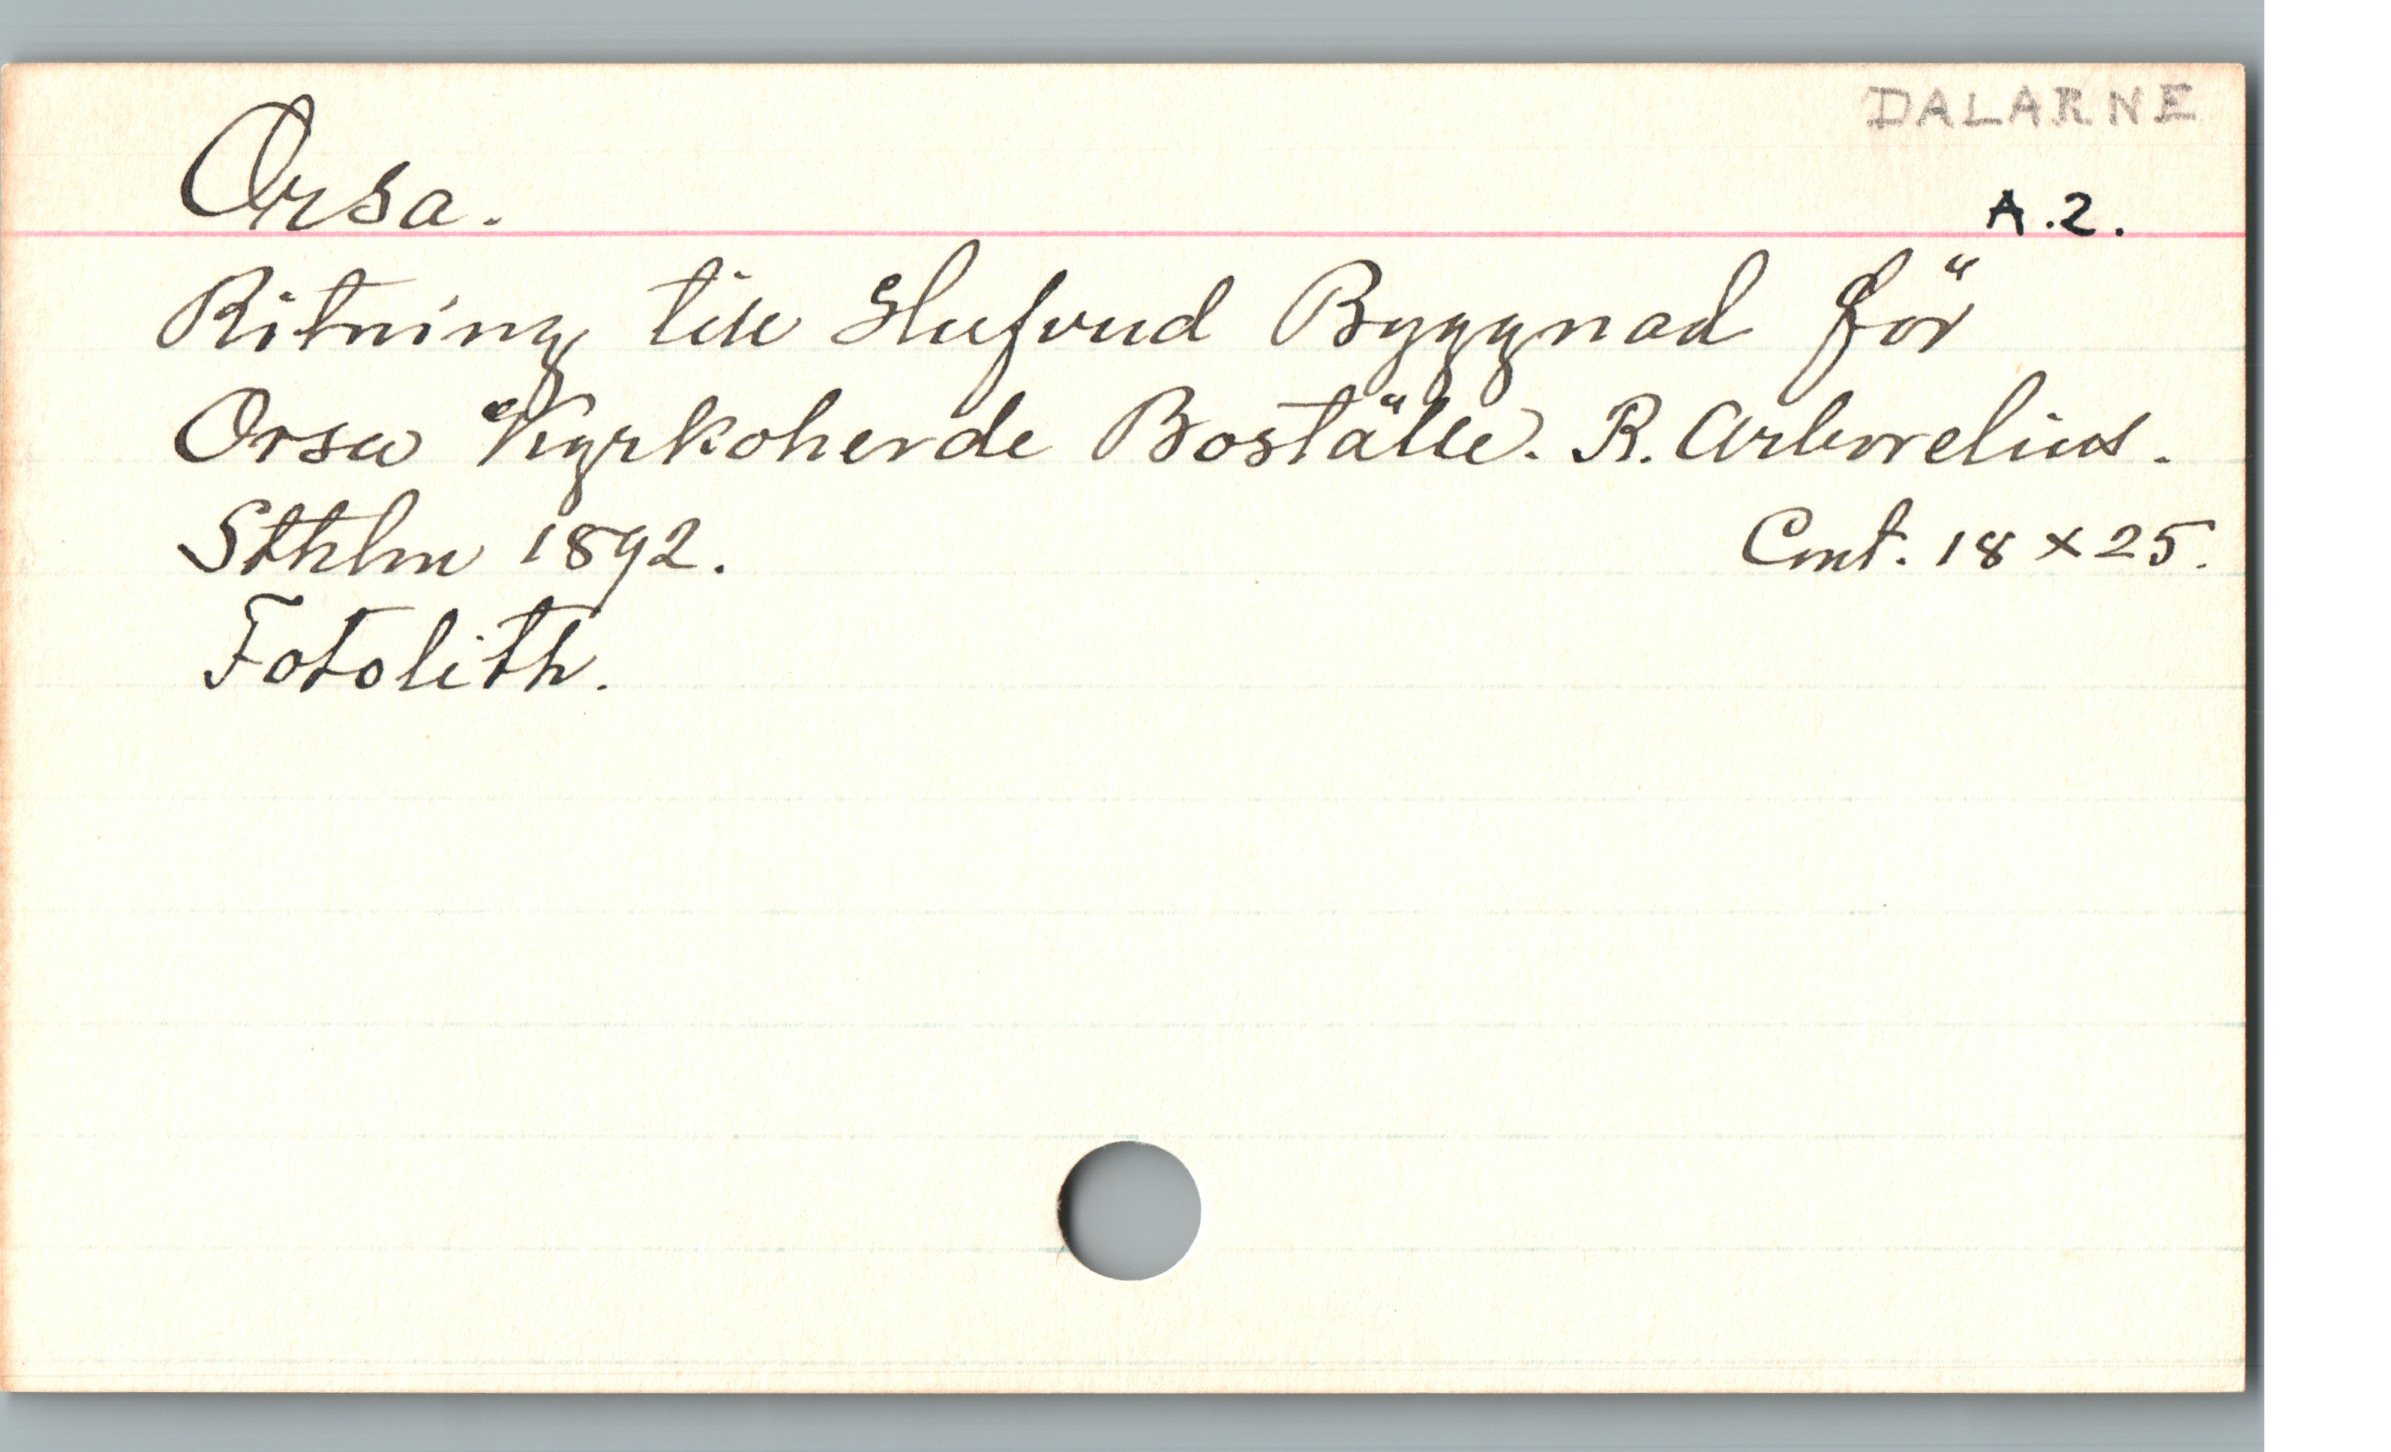 DALARNE
Orsa.
A.2.
Ritning till Hufvud Byggnad för
Orsa Kyrkoherde Boställe. R. Arborelius.
Sthlm 1892. Cmt. 18 x 25.
Fotolith.